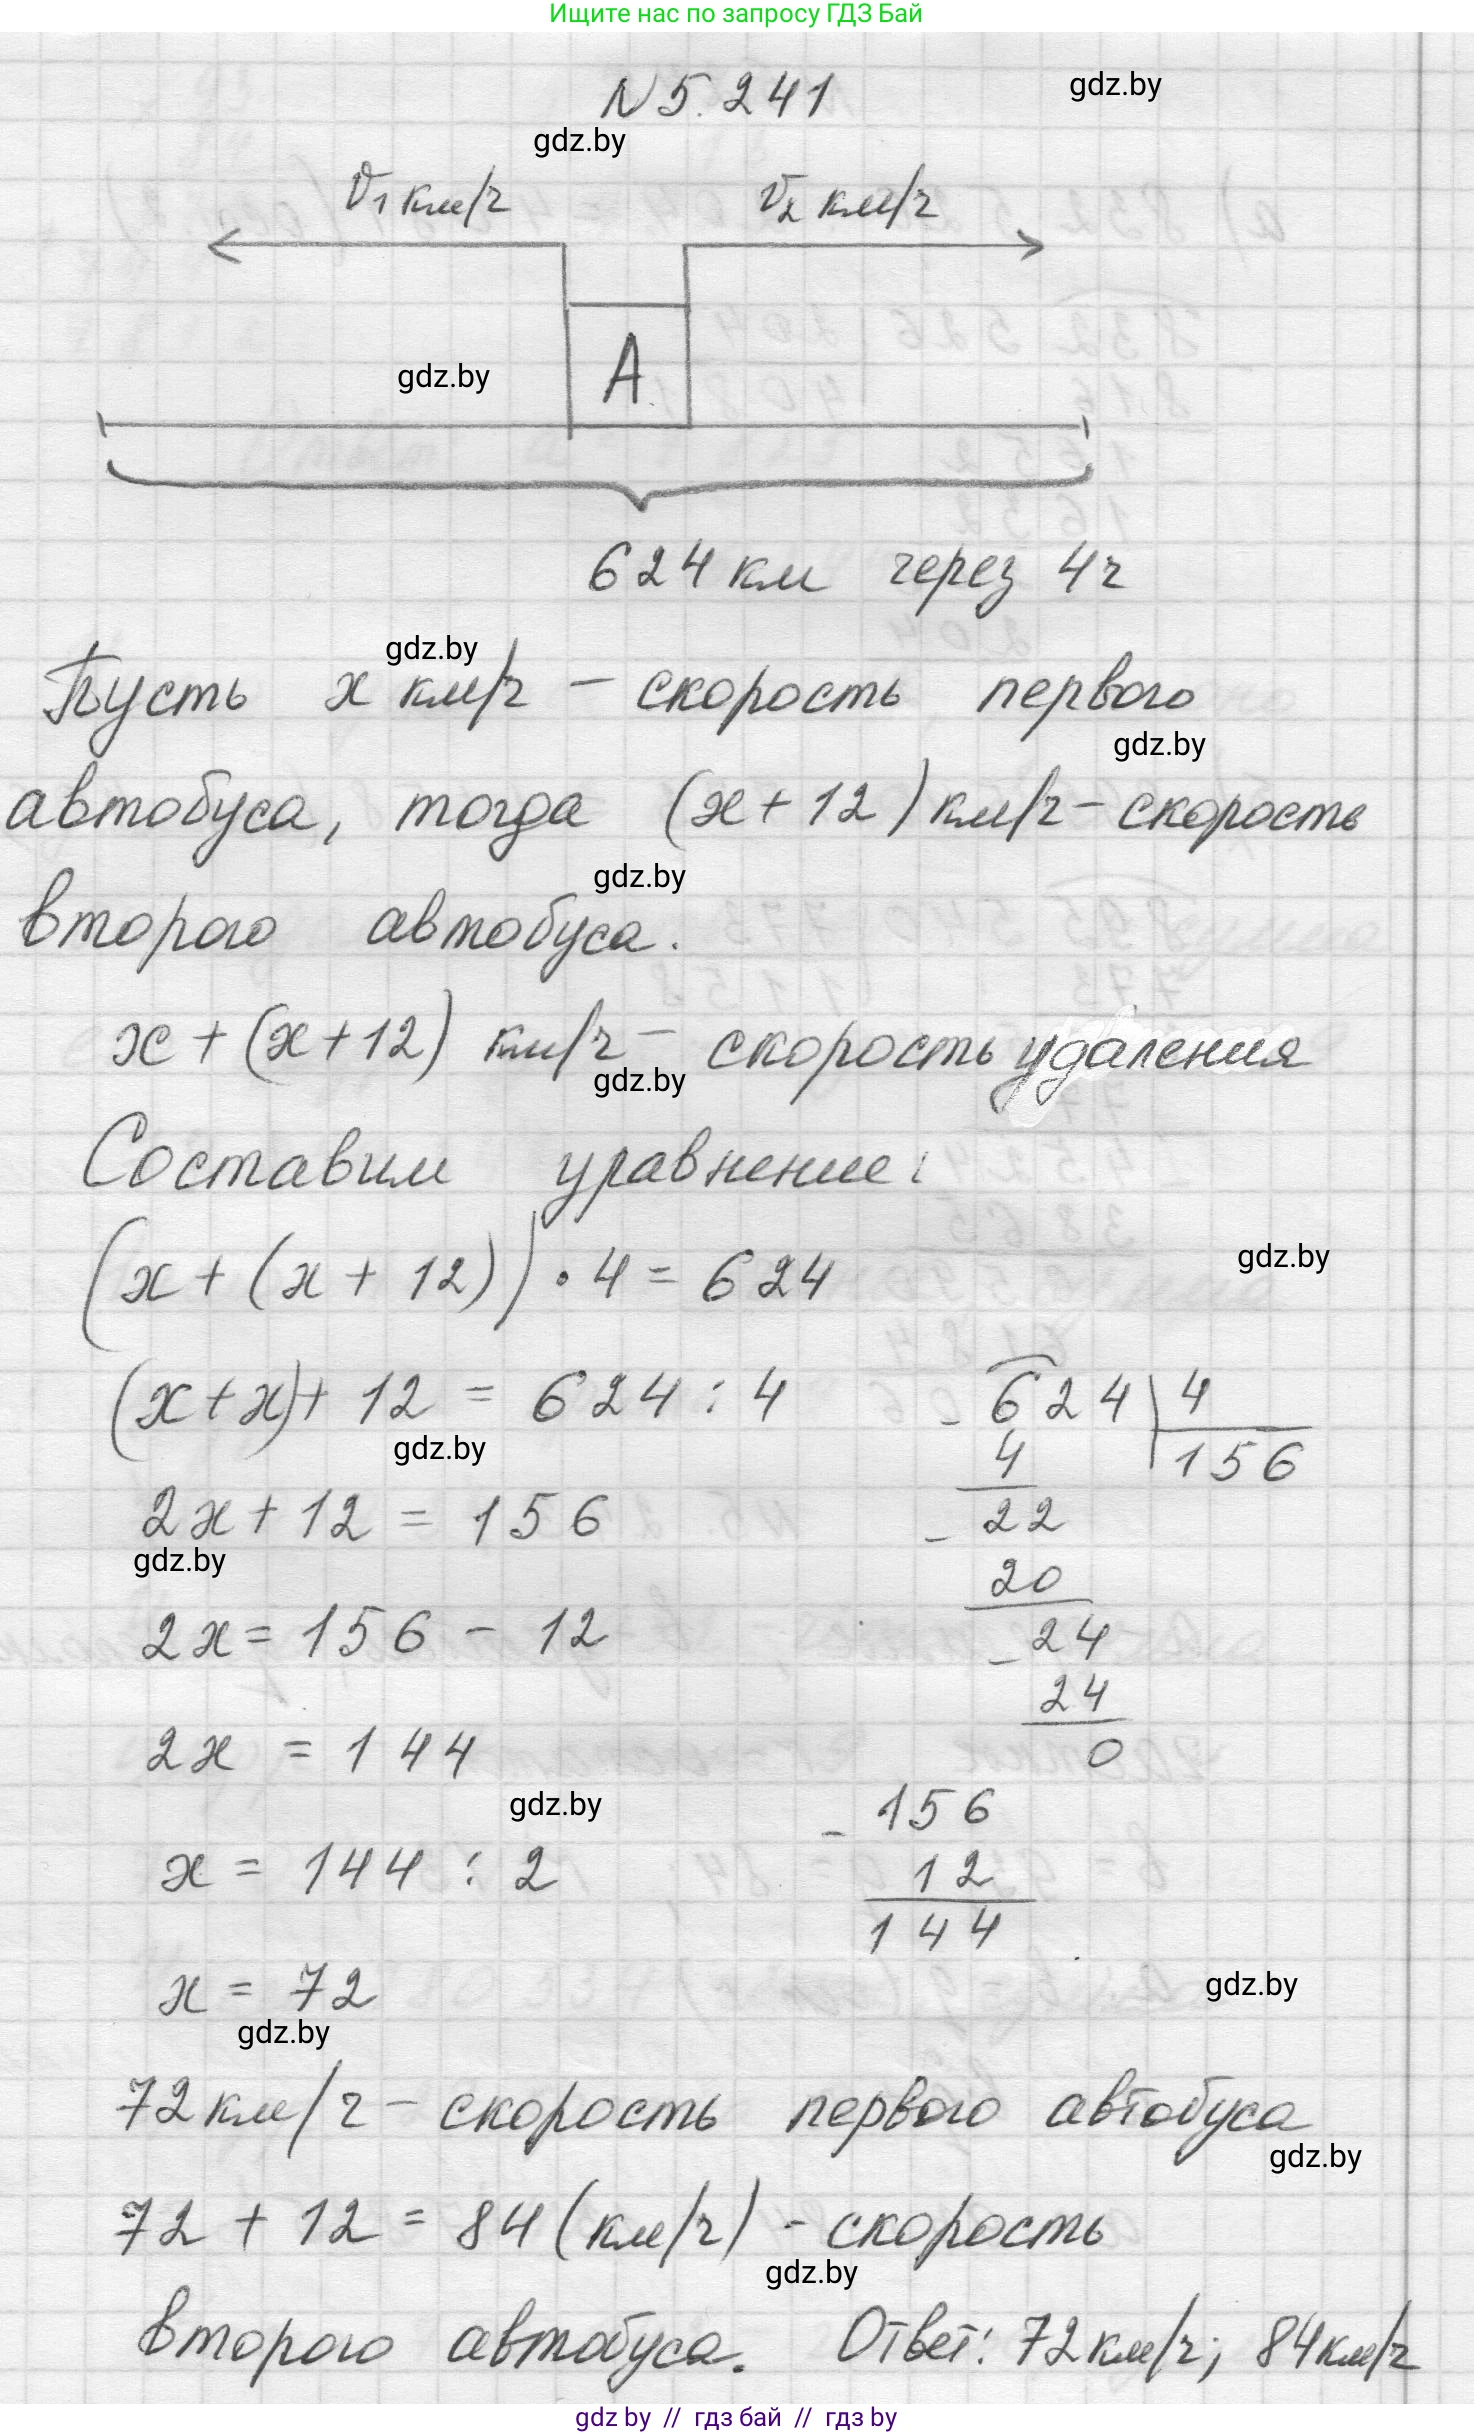 Ищите нас по запросу ГДЗ Бай
N 5.241
gdz.by
gdz.by
V₁ км/ч
V₂ км/ч
gdz.by
A
624 км через 4ч
gdz.by
Пусть x км/ч - скорость первого
gdz.by
автобуса, тогда (x + 12) км/ч - скорость
gdz.by
второго автобуса.
x + (x + 12) км/ч - скорость удаления
gdz.by
Составим уравнение:
(x + (x + 12)) • 4 = 624
gdz.by
(x + x) + 12 = 624 : 4
- 624 | 4
gdz.by
4
156
2x + 12 = 156
- 22
gdz.by
20
2x = 156 - 12
- 24
24
2x = 144
0
gdz.by
- 156
x = 144 : 2
12
144
x = 72
gdz.by
gdz.by
72 км/ч - скорость первого автобуса
gdz.by
72 + 12 = 84 (км/ч) - скорость
gdz.by
второго автобуса. Ответ: 72 км/ч; 84 км/ч
gdz by // гдз бай // гдз by